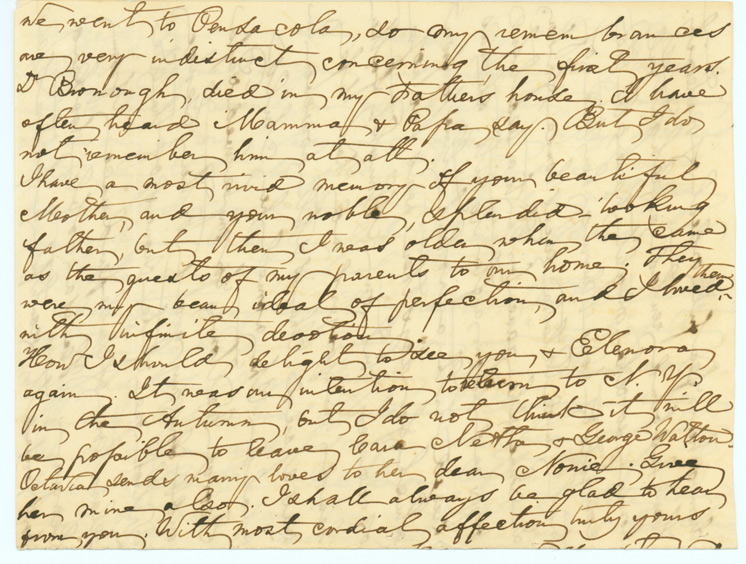 we went to Pensacola, so my remembrances
are very indistinct concerning the first years.
Dr Bronough, died in my Fathers house, I have
often heard Mamma & Papa, say. But I do
not remember him at all.
I have a most vivid memory of your beautiful
Mother, and your noble, splendid-looking
father, but then I was older when they came
as the guests of my parents to our home. They
were my beau ideal of perfection, and I loved them
with infinite devotion
How I should delight to see you & Elenora
again. It was our intention to return to N. Y.
in the Autumn, but I do not think it will
be possible to leave Cara Netta & George Walton
Octavia sends many loves to her dear Nonie. Give
her mine also. I shall always be glad to hear
from you. With most cordial affection truly yours